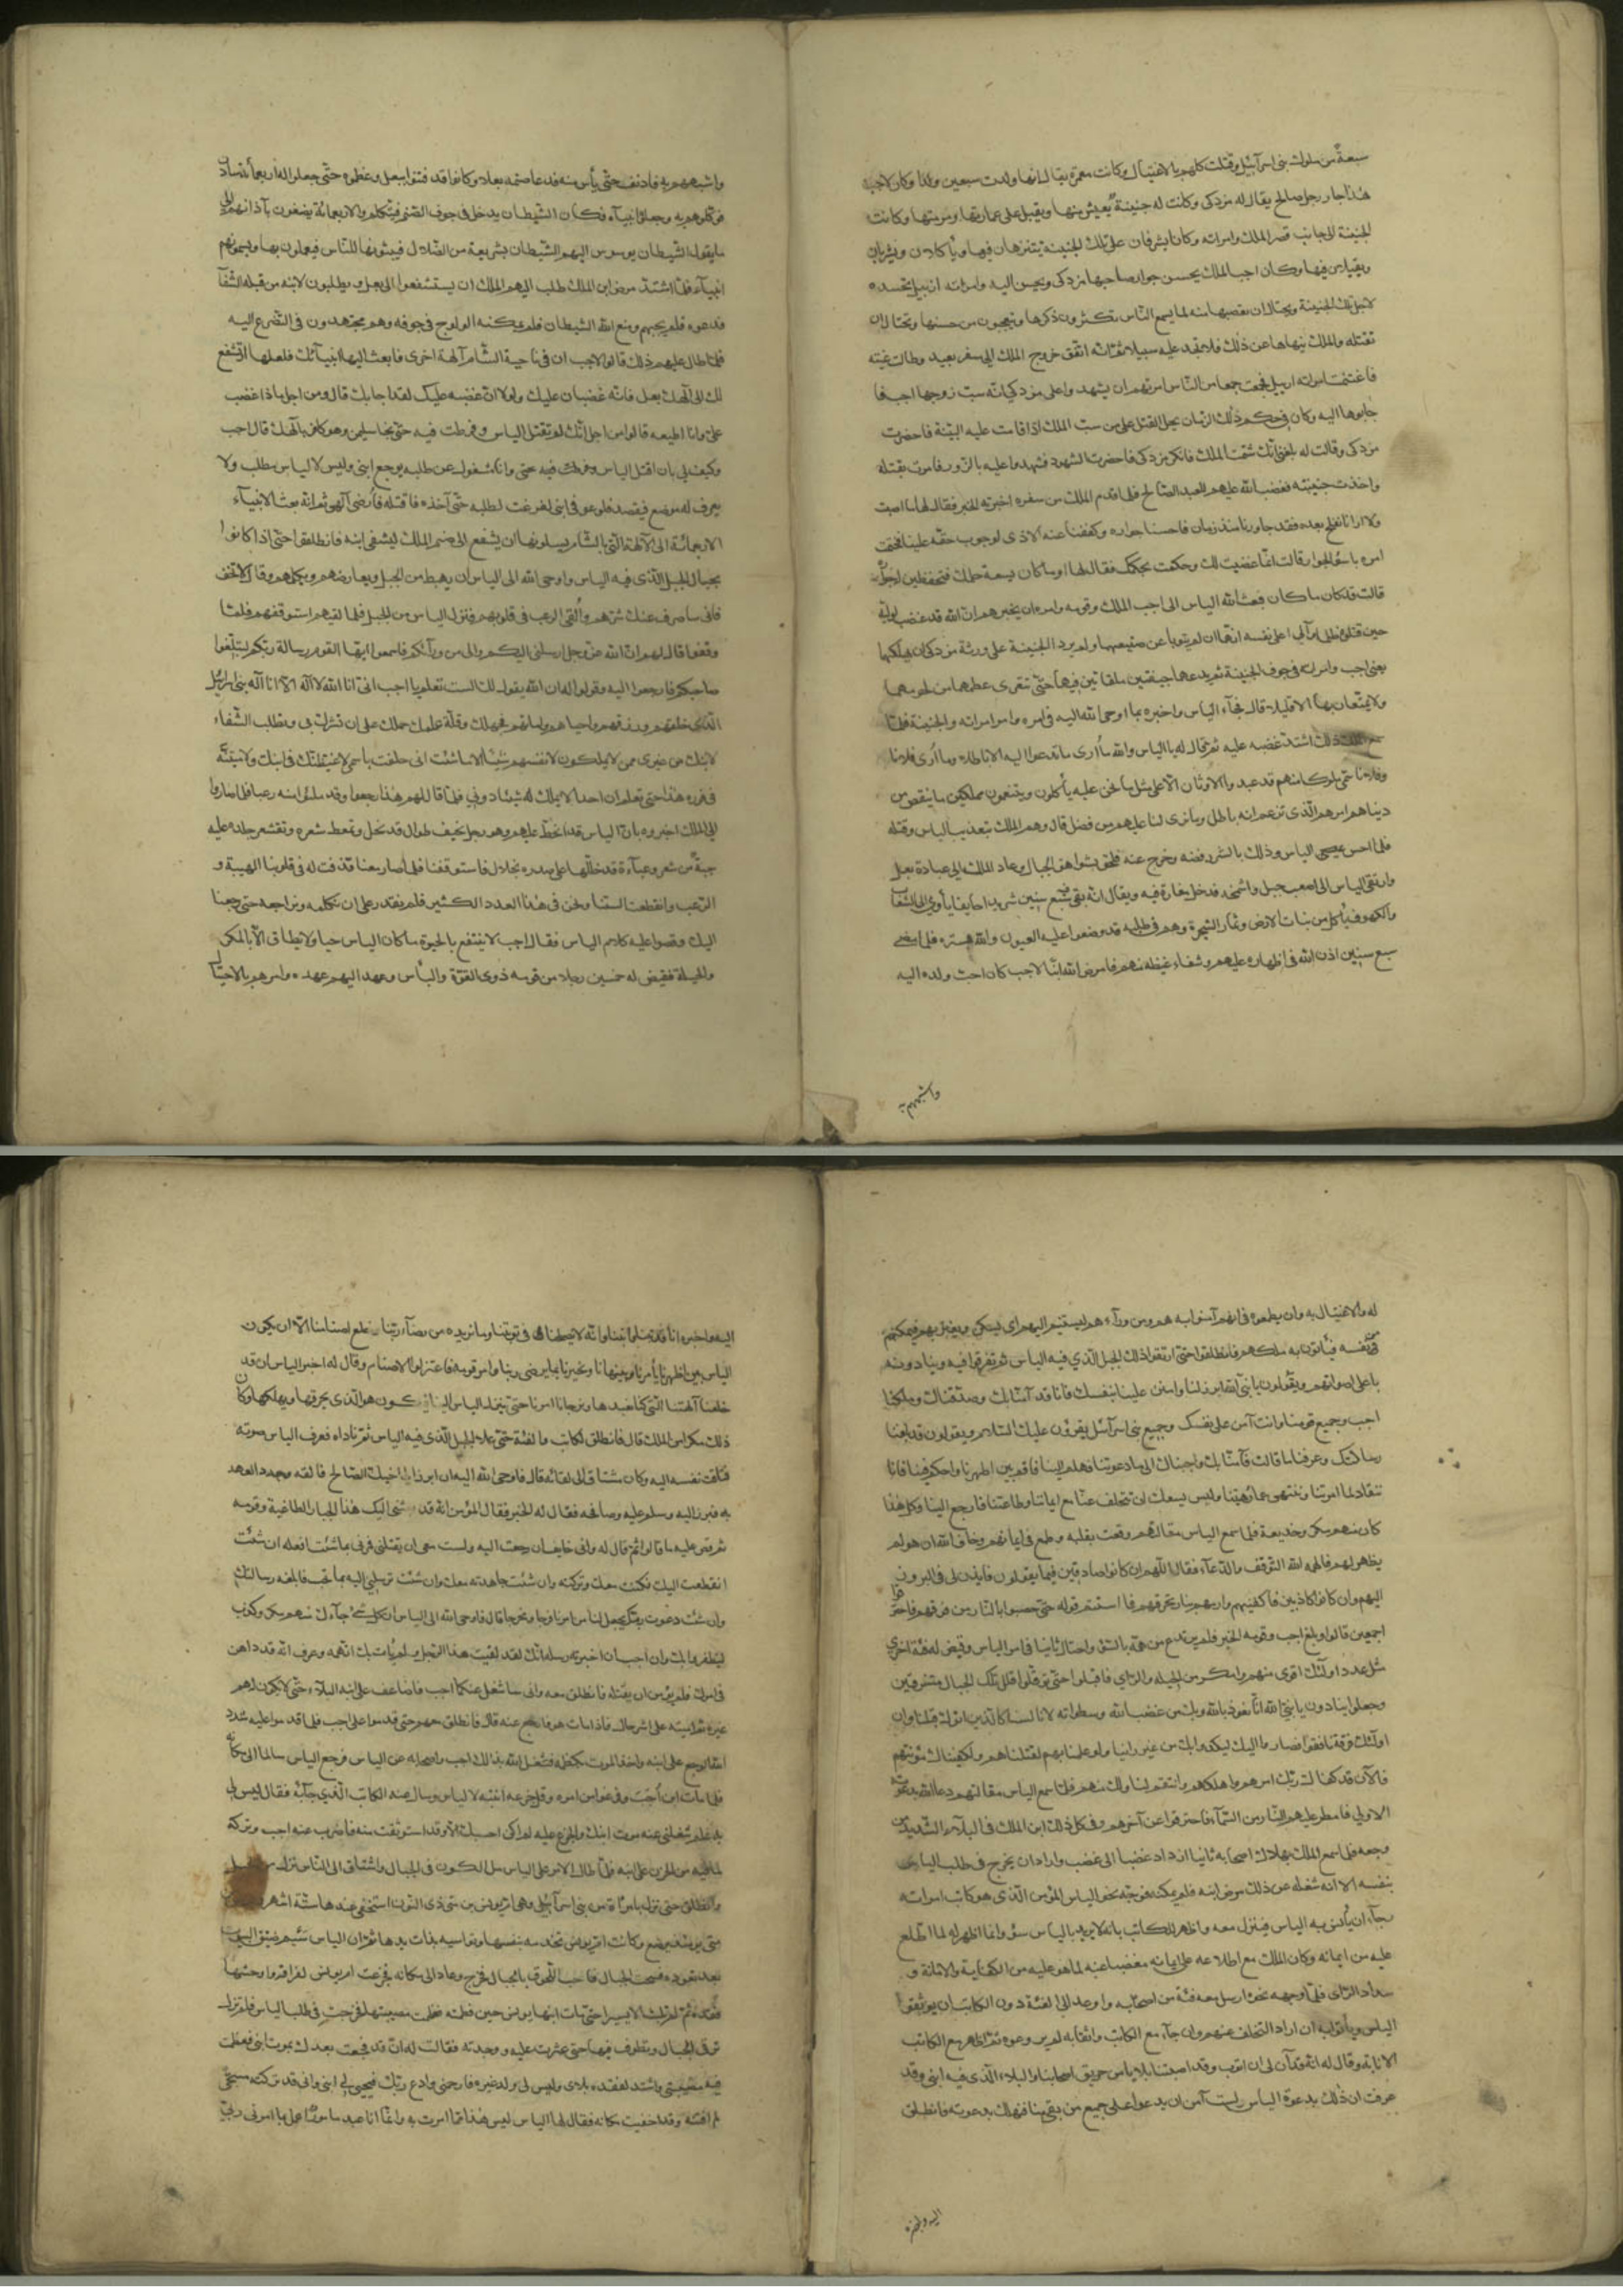 سبعة من ملوك بنى اسرآئيل وقتلت كلهم بالاغتيال وكانت معمرة يقال انها ولدت سبعين ولدا وكان لاجب
هذا جار رجل صالح يقال له مزدكى وكانت له جنينة يعيش منها ويقبل على عمارتها ومرمتها وكانت
الجنينة الى جانب قصر الملك وامراته وكانا يشرفان على تلك الجنينة يتنزهان فيها وياكلان ويشربان
ويقيلان فيها وكان اجب الملك يحسن جوار صاحبها مزدكى ويحسن اليه وامراته ازبيل تحسده
لاجل تلك الجنينة وتحتال ان تغصبها منه لما يسمع الناس تكثرون ذكرها ويتعجبون من حسنها وتحتال ان
تقتله والملك ينهاها عن ذلك فلا تجد عليه سبيلا ثم انه اتفق خروج الملك الى سفر بعيد وطالت غيبته
فاغتنمت امراته ازبيل فجمعت جمعا من الناس امرتهم ان يشهدوا على مزدكى انه سب زوجها اجب فا
جابوها اليه وكان فى حكم ذلك الزمان يحل القتل على من سب الملك اذا قامت عليه البينة فاحضرت
مزدكى وقالت له بلغنى انك شتمت الملك فانكر مزدكى فاحضرت الشهود فشهدوا عليه بالزور فامرت بقتله
واخذت جنينته فغضب الله عليهم للعبد الصالح فلما قدم الملك من سفره اخبرته الخبر فقال لها ما اصبت
ولا ارانا نفلح بعده فقد جاورنا منذ زمان فاحسنا جواره وكففنا عنه الاذى لوجوب حقه علينا فختمت
امره باسوأ الجوار فقالت انما غضبت لك وحكمت بحكمك فقال لها او ما كان يسعه حلمك فتحفظين له جواره
قالت قد كان ما كان فبعث الله الياس الى اجب الملك وقومه وامره ان يخبرهم ان الله قد غضب لوليه
حين قتلوه ظلما وآلى على نفسه انهما ان لم يتوبا عن صنيعهما ولم يرد الجنينة على ورثة مزدكى ان يهلكهما
يعنى اجب وامراته فى جوف الجنينة ثم يدعهما جيفتين ملقاتين فيها حتى تتعرى عظامهما من لحومهما
ولا يتمتعان بها الا قليلا قال فجآء الياس واخبره بما اوحى الله اليه فى امره وامر امراته والجنينة فلما
سمع الملك ذلك اشتد غضبه عليه ثم قال له يا الياس والله ما ارى ما تدعو اليه الا باطلا وما ارى فلانا
وفلانا سمى ملوكا منهم قد عبدوا الاوثان الا على مثل ما نحن عليه يأكلون ويتنعمون مملكين ما ينقص من
دنياهم امرهم الذى تزعم انه باطل وما نرى لنا عليهم من فضل قال وهم الملك بتعذيب الياس وقتله
فلما احس الياس وذلك بالشر رفضه وخرج عنه فلحق بشواهق الجبال وعاد الملك الى عبادة بعل
وارتقى الياس الى اصعب جبل واشمخه فدخل مغارة فيه ويقال انه بقى سبع سنين شريدا خايفا يأوى الى الشعاب
والكهوف يأكل من نبات الارض وثمار الشجرة وهم فى طلبه قد وضعوا عليه العيون والله يستره فلما مضى
سبع سنين اذن الله فى اظهاره عليهم وشفاء غيظه منهم فامرض الله ابنا لاجب كان احب ولده اليه
واشبههم به
واشبههم به فادنف حتى يأس منه فدعا صنمه بعلا وكانوا قد فتنوا ببعل وعظموه حتى جعلوا له اربعمأئة سادن
فوكلوهم به وجعلوا انبيآء فكان الشيطان يدخل فى جوف الصنم فيتكلم والاربعمائة يصغون بآذانهم الى
ما يقول الشيطان يوسوس اليهم الشيطان بشريعة من الضلال فيبثونها للناس فيعملون بها ويسمونهم
انبيآء فلما اشتد مرض ابن الملك طلب اليهم الملك ان يستشفعوا الى بعل ويطلبون لابنه من قبله الشفآ
فدعوه فلم يجبهم ومنع الله الشيطان فلم يمكنه الولوج فى جوفه وهم مجتهدون فى التضرع اليه
فلما طال عليهم ذلك قالوا لاجب ان فى ناحية الشام آلهة اخرى فابعث اليها انبيآئك فلعلها تشفع
لك الى آلهك بعل فانه غضبان عليك ولولا ان غضبه عليك لقد اجابك قال ومن اجل ماذا غضب
على وانا اطيعه قالوا من اجل انك لم تقتل الياس وفرطت فيه حتى نجا سليما وهو كافر بآلهك قال اجب
وكيف لى بان اقتل الياس وانا مشغول عن طلبه بوجع ابنى وليس لالياس مطلب ولا
يعرف له موضع فيقصد فلو عوفى ابنى لفرغت لطلبه حتى آخذه فاقتله فأرضى آلهى ثم انه بعث الانبيآء
الاربعمائة الى الالهة التى بالشام يسلونها ان يشفع الى صنم الملك ليشفى ابنه فانطلقوا حتى اذا كانوا
بحيال الجبل الذى فيه الياس واوحى الله الى الياس ان يهبط من الجبل ويعارضهم ويكلمهم وقال لا تخف
فانى ساصرف عنك شرهم والقى الرعب فى قلوبهم فنزل الياس من الجبل فلما لقيهم استوقفهم فلما
وقفوا قال لهم ان الله عز وجل ارسلنى اليكم والى من ورآئكم فاسمعوا ايها القوم رسالة ربكم لتبلغوا
صاحبكم فارجعوا اليه وقولوا له ان الله يقول لك الست تعلم يا اجب انى انا الله لا اله الا انا اله بنى اسرائيل
الذى خلقهم ورزقهم واحياهم واماتهم فجهلك وقلة علمك حملك على ان تشرك بى وتطلب الشفاء
لابنك من غيرى ممن لا يملكون لانفسهم شيئا الا ما شئت انى حلفت باسمى لاغيظنك فى ابنك ولاميتنه
فى فوره هذا حتى تعلم ان احدا لا يملك له شيئا دونى فلما قال لهم هذا رجعوا وقد ملئوا منه رعبا فلما صاروا
الى الملك اخبروه بان الياس قد انحط عليهم وهو رجل نحيف طوال قد نحل وتمعط شعره وتقشر جلده عليه
جبة من شعر وعباءة قد خللها على صدره بخلال فاستوقفنا فلما صار معنا قذفت له فى قلوبنا الهيبة و
الرعب وانقطعت السنتنا ونحن فى هذا العدد الكثير فلم نقدر على ان نتكلمه ونراجعه حتى رجعنا
اليك وقصوا عليه كلام الياس فقال اجب لا ينتفع بالحيوة ما كان الياس حيا ولا يطاق الا بالمكر
والحيلة فقيض له خمسين رجلا من قومه ذوى القوة والبأس وعهد اليهم عهده وامرهم بالاحتيال
له والاغتيال به وان يطمعوه فى انهم آمنوا به هم ومن ورآءهم ليستنيم اليهم اى ليسكن ويغتر بهم فيمكنهم
من نفسه فيأتون به ملكهم فانطلقوا حتى ارتقوا ذلك الجبل الذى فيه الياس ثم تفرقوا فيه وينادونه
باعلى اصواتهم ويقولون يا نبى الله ابرز لنا وامنن علينا بنفسك فانا قد آمنا بك وصدقناك وملكنا
اجب وجميع قومنا وانت آمن على نفسك وجميع بنى اسرآئيل يقرؤن عليك السلام ويقولون قد بلغنا
رسالتك وعرفنا ما قالت فآمنا بك واجبناك الى ما دعوتنا فهلم الينا فاقم بين اظهرنا واحكم فينا فانا
ننقاد لما امرتنا وننتهى عما نهيتنا وليس يسعك ان تتخلف عنا مع ايماننا وطاعتنا فارجع الينا وكل هذا
كان منهم مكر وخديعة فلما سمع الياس مقالتهم وقعت بقلبه وطمع فى ايمانهم وخاف الله ان هو لم
يظهر لهم فالهمه الله التوقف والدعآء فقال اللهم ان كانوا صادقين فيما يقولون فايذن لى فى البروز
اليهم وان كانوا كاذبين فاكفنيهم وارمهم بنار تحرقهم فما استتم قوله حتى حصبوا بالنار من فوقهم فاحترقوا
اجمعين قالوا وبلغ اجب وقومه الخبر فلم يرتدع من همه بالشر واحتال ثانيا فى امر الياس وقيض له فئة اخرى
مثل عدد اولئك اقوى منهم وامكر من الحيلة والراى فاقبلوا حتى توقلوا قلل تلك الجبال متفرقين
وجعلوا ينادون يا نبى الله انا نعوذ بالله وبك من غضب الله وسطواته لانا لسنا كالذين اتوك قبلنا وان
اولئك فرقة نافقوا فصاروا اليك ليكيدوا بك من غير راينا ولو علمنا بهم لقتلناهم ولكفيناك مؤنتهم
فالآن قد كفاك ربك امرهم واهلكهم وانتقم لنا ولك منهم فلما سمع الياس مقالتهم دعا الله بدعوته
الاولى فامطر عليهم النار من السمآء فاحترقوا عن آخرهم وفى كل ذلك ابن الملك فى البلاء الشديد من
وجعه فلما سمع الملك بهلاك اصحابه ثانيا ازداد غضبا الى غضب واراد ان يخرج فى طلب الياس
بنفسه الا انه شغله عن ذلك مرض ابنه فلم يمكنه فوجه نحو الياس المؤمن الذى هو كاتب امراته
رجآء ان يأنس به الياس فينزل معه واظهر للكاتب بانه لا يريد بالياس سوء وانما اظهر له لما اطلع
عليه من ايمانه وكان الملك مع اطلاعه على ايمانه مغضيا عنه لما هو عليه من الكفاية والامانة و
سداد الراى فلما وجهه نحوه ارسل معه فئة من اصحابه واوعد الى الفئة دون الكاتب ان يوثقوا
الياس ويأتوا به ان اراد التخلف عنهم وان جآء مع الكاتب واثقا به لم يروعوه ثم اظهر مع الكاتب
الانابة وقال له انه قد آن لى ان اتوب وقد اصبتنا بلايا من حريق اصحابنا والبلاء الذى فيه ابنى وقد
عرفت ان ذلك بدعوة الياس ولست آمن ان يدعو على جميع من بقى منا فنهلك بدعوته فانطلق
اليه واخبره
اليه واخبره انا قد تبنا وانبنا وانه لا يصلحنا فى توبتنا وما نريده من رضآء ربنا وخلع اصنامنا الا ان يكون
الياس بين اظهرنا يأمرنا وينهانا ويخبرنا بما يرضى ربنا وامر قومه فاعتزلوا الاصنام وقال له اخبر الياس ان قد
خلعنا آلهتنا التى كنا نعبدها وارجانا امرنا حتى ينزل الياس الينا فيكون هو الذى يحرقها ويهلكها وكان
ذلك مكرا من الملك قال فانطلق الكاتب والفئة حتى علا الجبل الذى فيه الياس ثم ناداه فعرف الياس صوته
فتاقت نفسه اليه وكان مشتاقا الى لقائه قال فاوحى الله اليه ان ابرز الى اخيك الصالح فالقه وجدد العهد
به فبرز اليه وسلم عليه وصافحه فقال له الخبر فقال المؤمن انه قد بعثنى اليك هذا الجبار الطاغية وقومه
ثم قص عليه ما قالوا ثم قال له وانى خايف ان رجعت اليه ولست معى ان يقتلنى فمرنى بما شئت افعله ان شئت
انقطعت اليك فكنت معك وتركته وان شئت جاهدته معك وان شئت ترسلنى اليه بما تحب فابلغه رسالتك
وان شئت دعوت ربك يجعل لنا من امرنا فرجا ومخرجا قال فاوحى الله الى الياس ان كل شئ جآءك منهم مكر وكذب
ليظفروا بك وان اجب ان اخبرته رسله انك لقد لقيت هذا الرجل ولم يأت بك اتهمه وعرف انه قد داهن
فى امرك فلم يؤمن ان يقتله فانطلق معه وانى ساشغل عنكما اجب فاضاعف على ابنه البلآء حتى لا يكون له هم
غيره ثم اميته على اشر حال فاذا مات هو فارجع عنه قال فانطلق معهم حتى قدموا على اجب فلما قدموا عليه شدد
الله الوجع على ابنه واخذ الموت بكظمه فشغل الله بذلك اجب واصحابه عن الياس فرجع الياس سالما الى مكانه
فلما مات ابن اجب وفرغوا من امره وقل جزعه انتبه لالياس وسال عنه الكاتب الذى جآء به فقال ليس لى
به علم شغلنى عنه موت ابنك والجزع عليه ولم اكن احسبك الا وقد استوثقت منه فاضرب عنه اجب وتركه
لما فيه من الحزن على ابنه فلما طال الامر على الياس مل الكون فى الجبال واشتاق الى الناس نزل من الجبل
وانطلق حتى نزل بامرأة من بنى اسرآئيل وهى ام يونس بن متى ذى النون استخفى عندها ستة اشهر
متى يومئذ يرضع وكانت ام يونس تخدمه بنفسها وتواسيه بذات يدها ثم ان الياس سئم ضيق البيوت
بعد تعوده فسحة الجبال فاحب اللحوق بالجبال فخرج وعاد الى مكانه فجزعت ام يونس لفراقه واوحشها
فقده ثم لم تلبث الا يسيرا حتى مات ابنها يونس حين فطمته فعظمت مصيبتها فخرجت فى طلب الياس فلم تزل
ترقى الجبال وتطوف فيها حتى عثرت عليه ووجدته فقالت له انى قد فجعت بعدك بموت ابنى فعظمت
فيه مصيبتى واشتد لفقده بلائى وليس لى ولد غيره فارحمنى وادع ربك فيحيى لى ابنى وانى قد تركته مسجى
لم ادفنه وقد اخفيت مكانه فقال لها الياس ليس هذا مما امرت به وانما انا عبد مأمور اعمل بما امرنى ربى